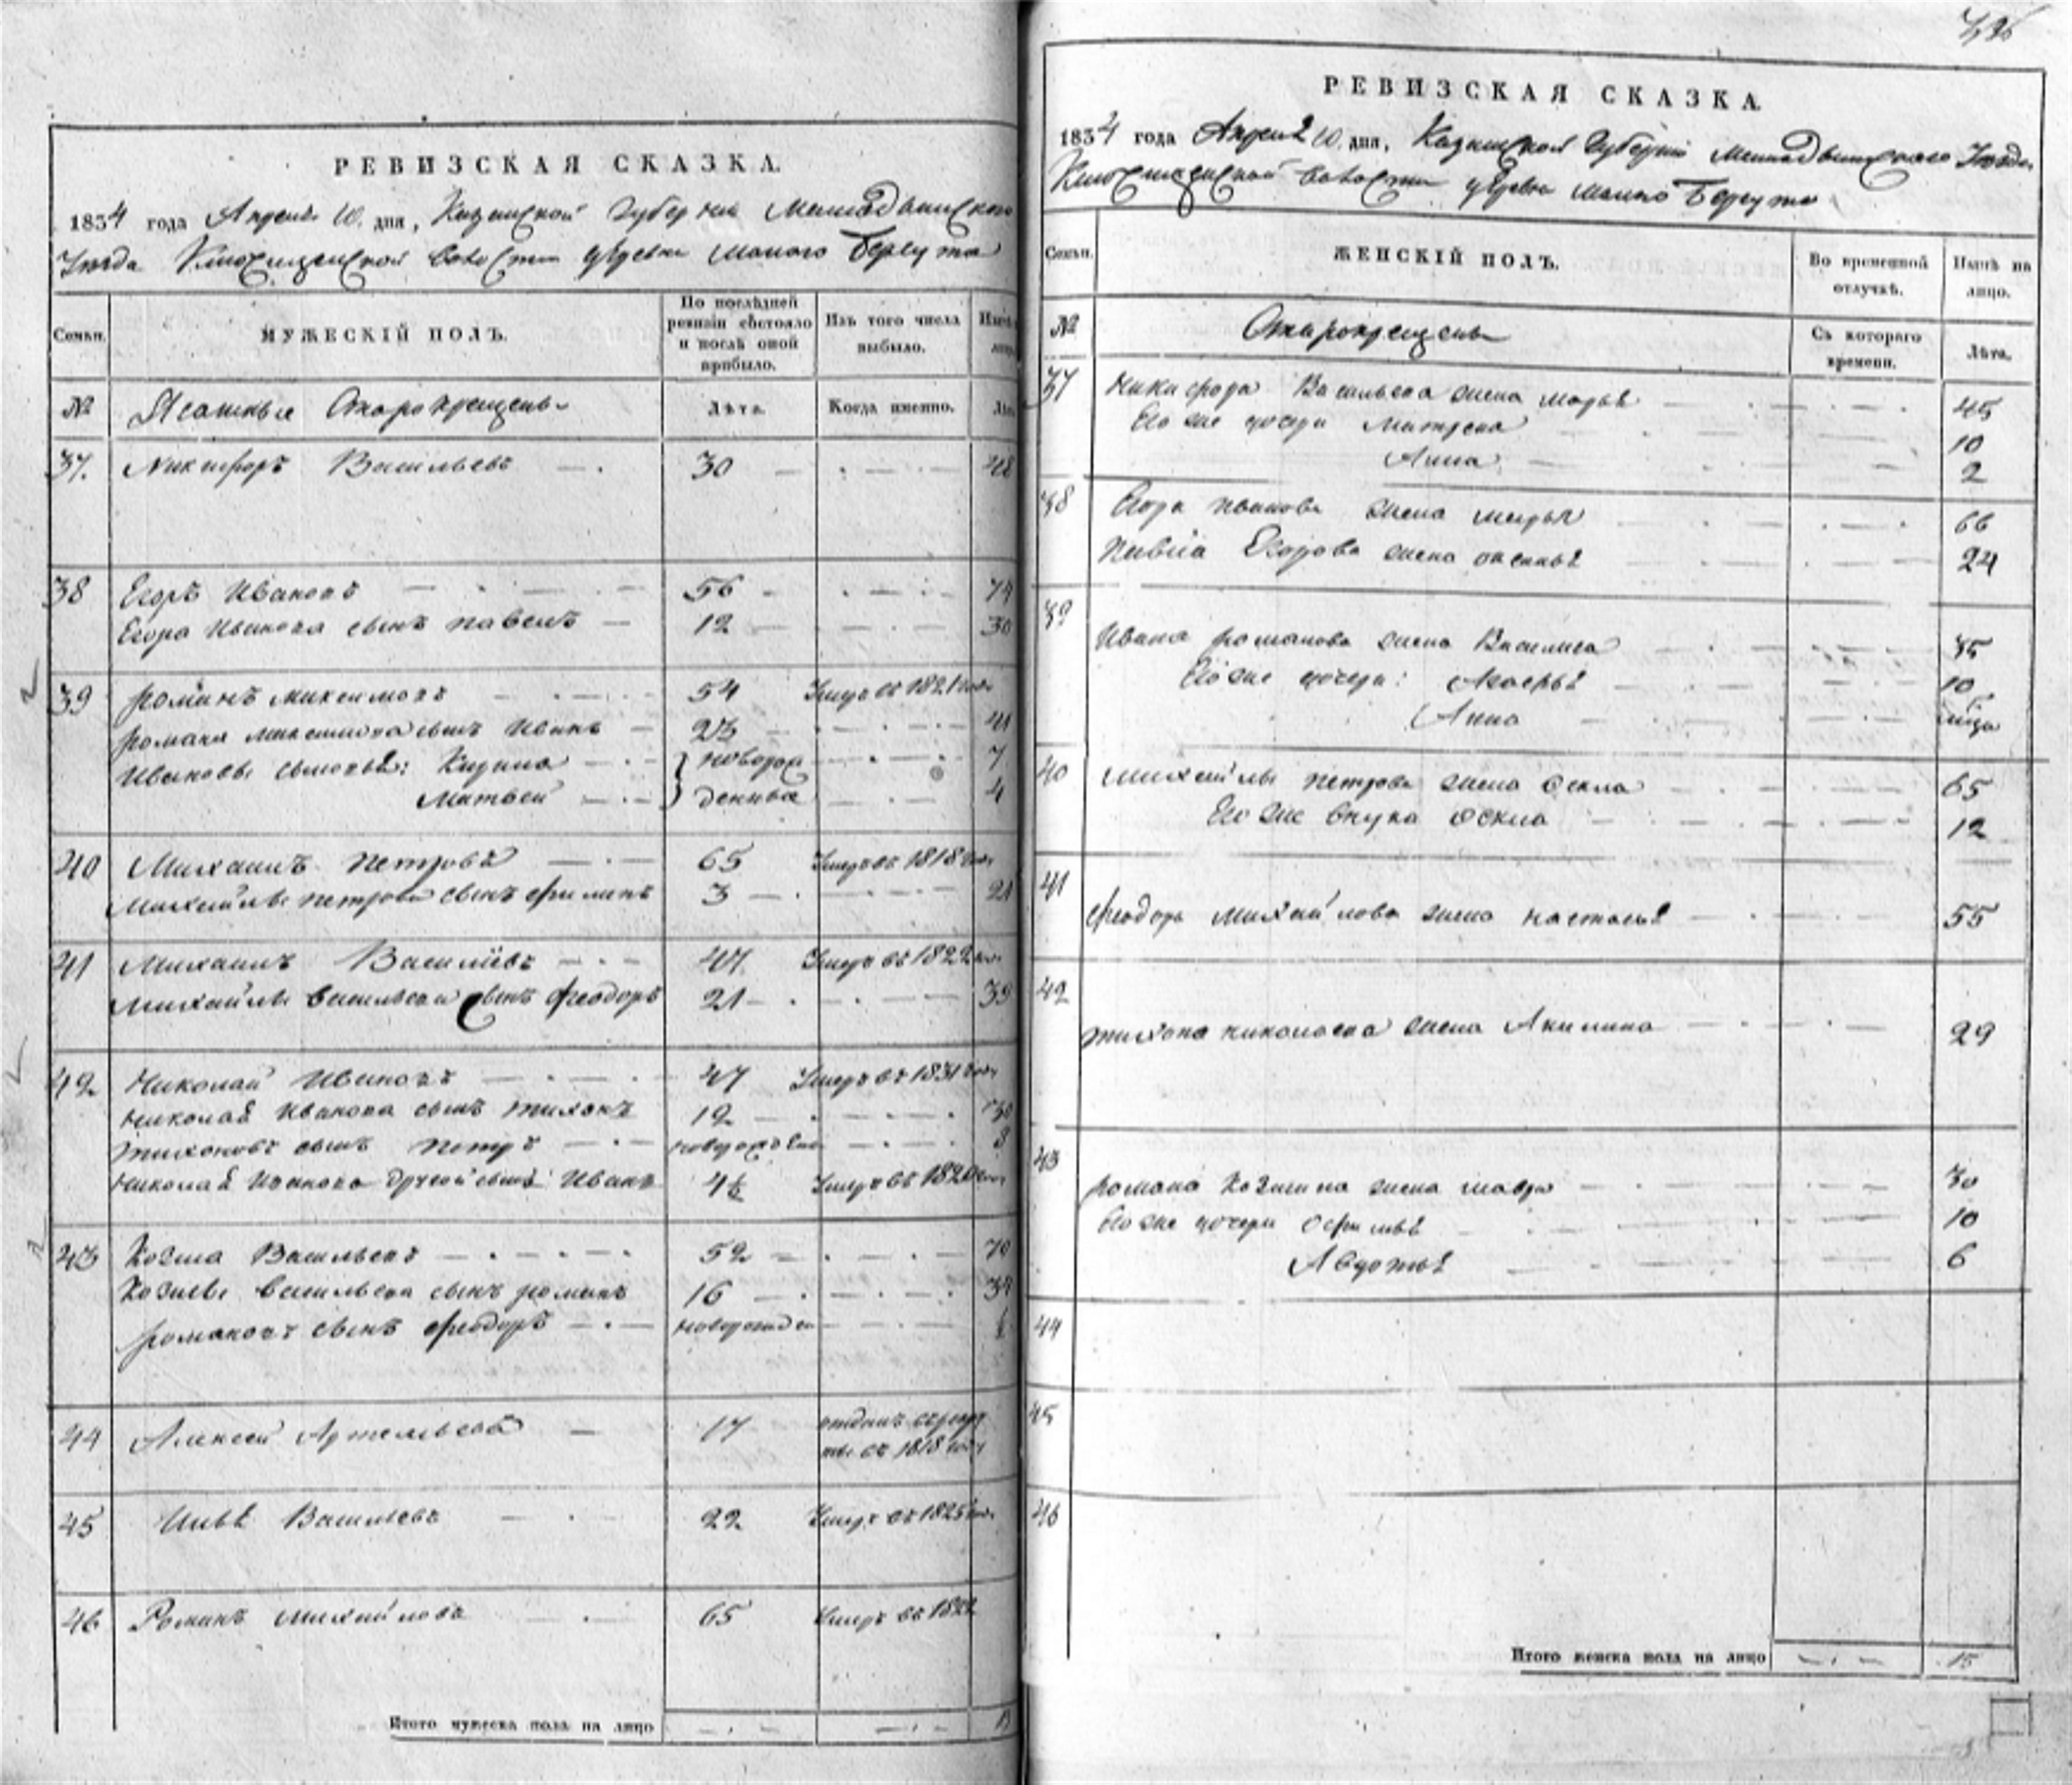 РЕВИЗСКАЯ СКАЗКА.
1834 года Апреля 10. дня, Казанской Губернии Мамадышского
Уезда Ключищенской волости деревни малого Берсута
Семьи. МУЖЕСКІЙ ПОЛЪ. По послѣдней ревизіи состояло и послѣ оной прибыло. Изъ того числа выбыло.
№ Ясашные Старокрещены Лѣта. Когда именно.
37. Никифоръ Васильевъ 30 48
38 Егоръ Ивановъ 56 74
Егора Иванова сынъ павелъ 12 30
39 романъ максимовъ 54 Умеръ въ 1821 году
романа максимова сынъ Иванъ 23 41
Ивановы сыновья: Кирила } новорож 7
Матвей } денныя 4
40 Михаилъ петровъ 65 Умеръ въ 1818 году
Михайлы петрова сынъ филипъ 3 21
41 Михаилъ Васильевъ 47 Умеръ въ 1822
Михайлы васильева сынъ феодоръ 21 39
42 Николай Ивановъ 47 Умеръ въ 1831 году
Николая Иванова сынъ тихонъ 12 30
тихоновъ сынъ петръ 3
Николая Иванова другой сынъ Иванъ Умеръ въ
43 Козма Васильевъ 52 70
Козмы васильева сынъ романъ 16 34
романовъ сынъ феодоръ новорожден
44 Алексей Артемьевъ 17 отданъ въ рекру
ты въ 1818 году
45 Илья Васильевъ 22 Умеръ въ 1825
46 Романъ михайловъ 65 Умеръ въ 1822
Итого мужеска пола на лицо
РЕВИЗСКАЯ СКАЗКА.
1834 года Апреля 10. дня, Казанской Губернии Мамадышского Уезда
Ключищенской волости деревни малого Берсута
Семьи. ЖЕНСКІЙ ПОЛЪ. Во временной отлучкѣ. Нынѣ на лицо.
№ Старокрещены Съ котораго времени. Лѣта.
37 Никифора Васильева жена марья 45
Его же дочери матрена 10
Анна 2
38 Егора Иванова жена марья 66
павла Егорова жена аксинья 24
39 Ивана романова жена Василиса 35
Его же дочери: Агафья 10
Анна
40 михайлы петрова жена Фекла 65
Его же внука Фекла 12
41 феодора михайлова жена настасья 55
42 тихона николаева жена Акилина 29
43 романа Козмина жена мавра 30
Его же дочери офимья 10
Авдотья 6
44
45
46
Итого женска пола на лицо 15